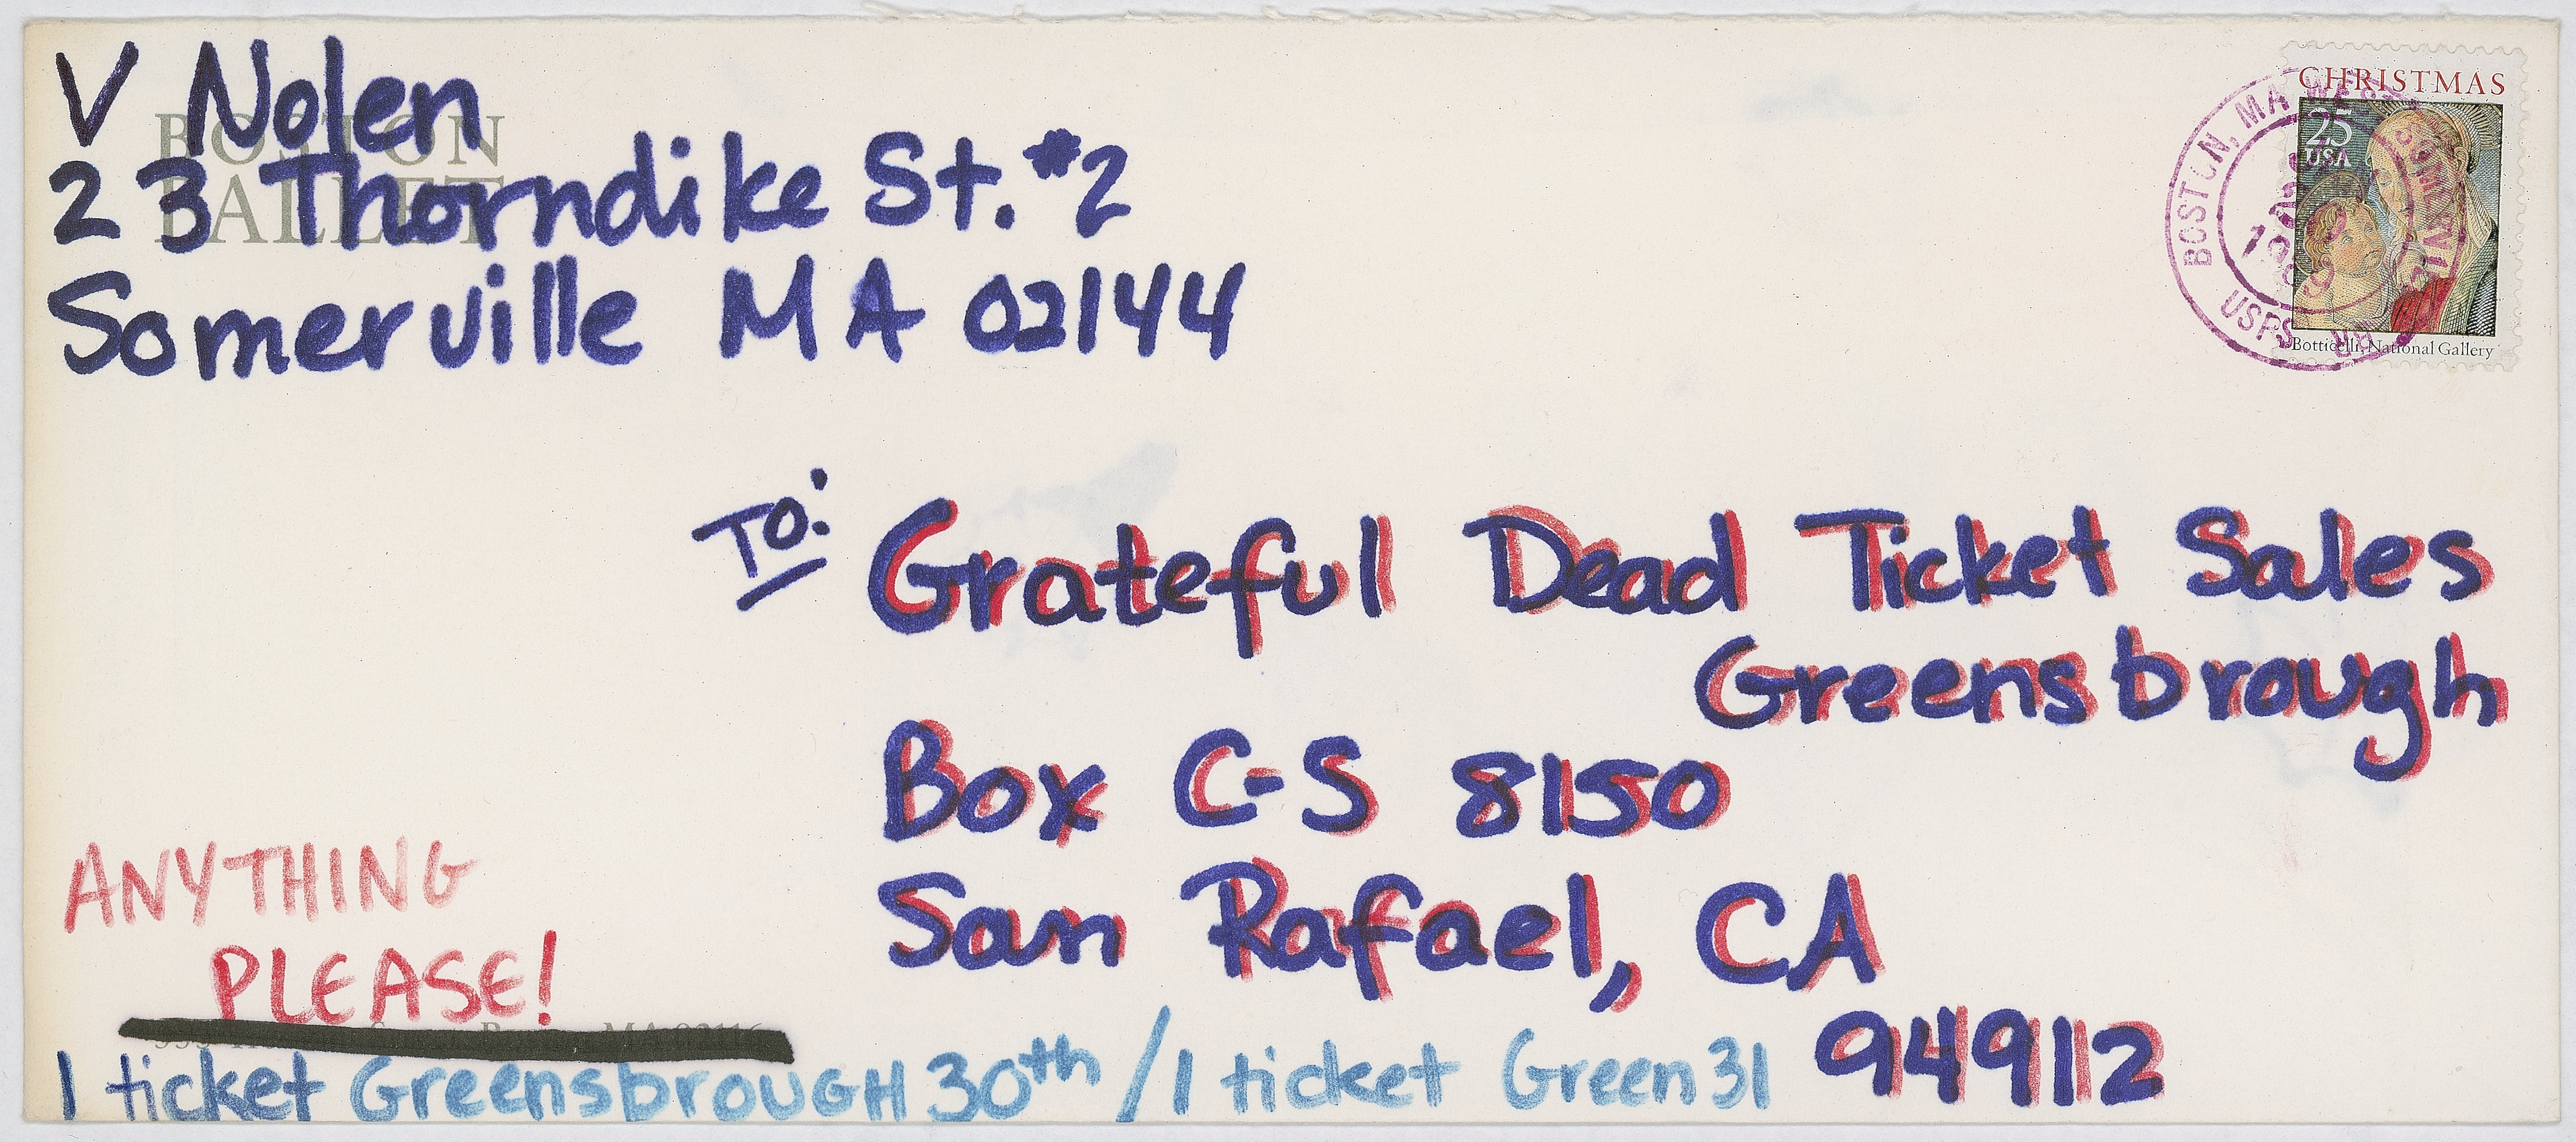 V Nolen
BOSTON
BALLET
23 Thorndike St. #2
Somerville MA 02144
CHRISTMAS
25
USA
Botticelli, National Gallery
BOSTON, MA
USPS
To:
Grateful Dead Ticket Sales
Greensbrough
Box C-S 8150
San Rafael, CA
94912
ANYTHING
PLEASE!
MA 02116
1 ticket GreensbrouGH 30th / 1 ticket Green 31